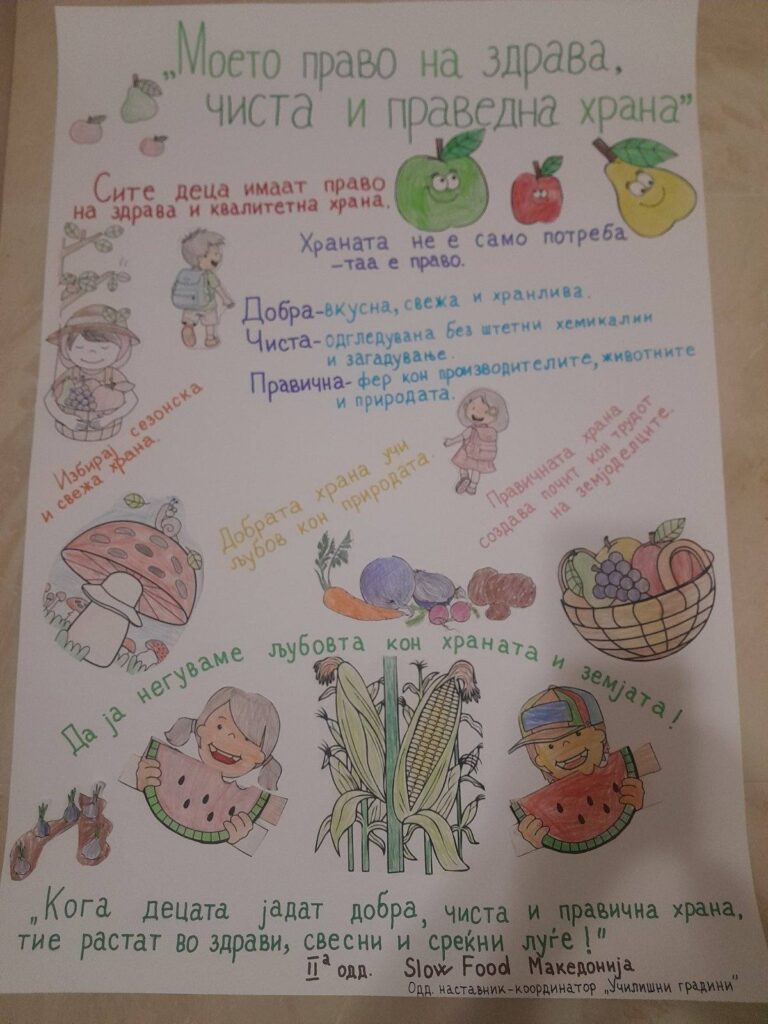 „Моето право на здрава,
чиста и праведна храна”
Сите деца имаат право
на здрава и квалитетна храна.
Храната не е само потреба
–таа е право.
Добра–вкусна, свежа и хранлива.
Чиста–одгледувана без штетни хемикалии
и загадување.
Правична–фер кон производителите, животните
и природата.
Избирај сезонска
и свежа храна.
Добрата храна учи
љубов кон природата.
Правичната храна
создава почит кон трудот
на земјоделците.
Да ја негуваме љубовта кон храната и земјата!
„Кога децата јадат добра, чиста и правична храна,
тие растат во здрави, свесни и среќни луѓе!”
IIª одд. Slow Food Македонија
Одд. наставник-координатор „Училишни градини”